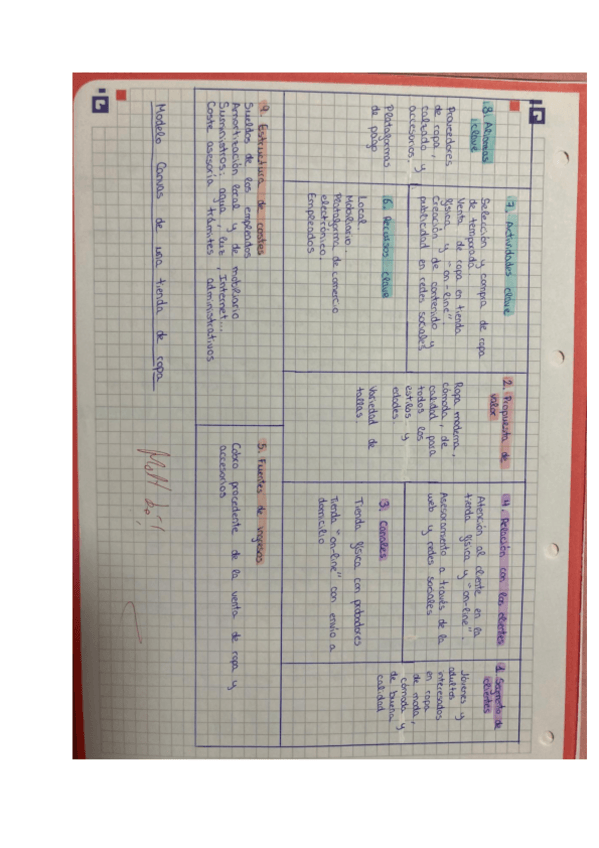 8. Alianzas
clave
Proveedores
de ropa,
calzado y
accesorios.
Plataformas
de pago
7. Actividades clave
Selección y compra de ropa
de temporada
Venta de ropa en tienda
física y "on-line"
Creación de contenido y
publicidad en redes sociales
6. Recursos clave
Local
Mobiliario
Plataforma de comercio
electrónico.
Empleados
2. Propuesta de
valor
Ropa moderna,
cómoda, de
calidad, para
todos los
estilos y
edades
Variedad de
tallas
4. Relación con los clientes
Atención al cliente en la
tienda física y "on-line".
Asesoramiento a través de la
web y redes sociales
3. Canales
Tienda física con probadores
Tienda "on-line" con envío a
domicilio
1. Segmento de
clientes
Jóvenes y
adultos
interesados
en ropa
de moda,
cómoda y
de buena
calidad
9. Estructura de costes
Sueldos de los empleados
Amortización local y de mobiliario
Suministros: agua, luz, Internet...
Coste asesoría trámites administrativos
5. Fuentes de ingresos
Cobro procedente de la venta de ropa y
accesorios
Modelo Canvas de una tienda de ropa